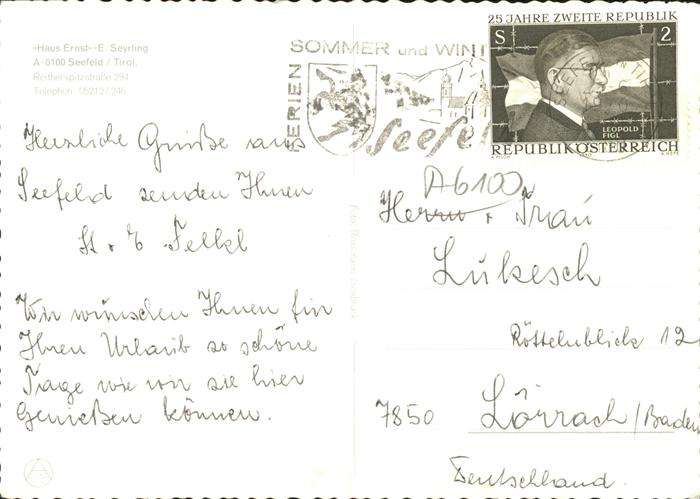 »Haus Ernst«-E. Seyrling
A-6100 Seefeld / Tirol,
Reitherspitzstraße 294
Telephon 05212/246
Herzliche Grüße aus
Seefeld senden Ihnen
H. + E Felkl
Wir wünschen Ihnen für
Ihren Urlaub so schöne
Tage wie wir sie hier
Genießen können.
FERIEN
SOMMER und WIN
Seefel
25 JAHRE ZWEITE REPUBLIK
S 2
LEOPOLD
FIGL
REPUBLIK ÖSTERREICH
A6100
Herrn + Frau
Lukesch
Röttelnblick 12
7850 Lörrach/Baden
Deutschland.